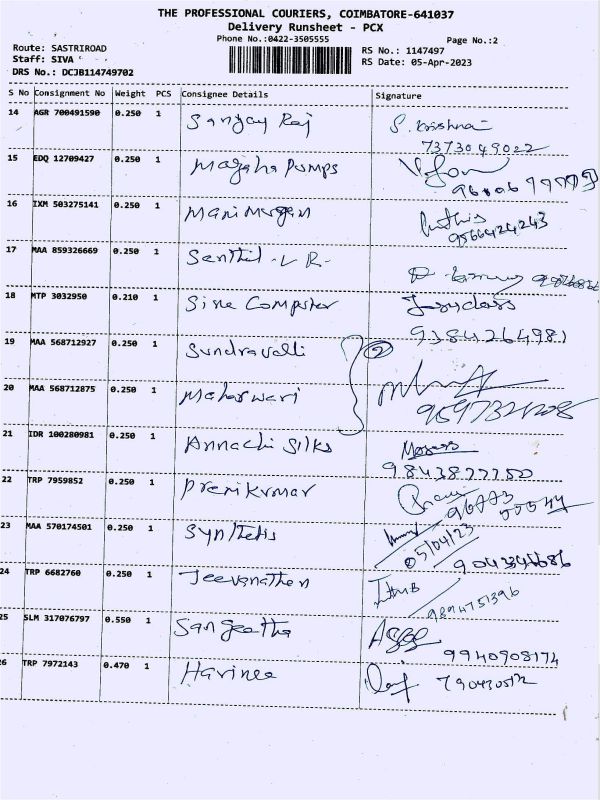 THE PROFESSIONAL COURIERS, COIMBATORE-641037
Delivery Runsheet - PCX
Phone No.:0422-3505555
Page No.:2
Route: SASTRIROAD
Staff: SIVA
DRS No.: DCJB114749702
RS No.: 1147497
RS Date: 05-Apr-2023
S No Consignment No Weight PCS Consignee Details Signature
14 AGR 700491590 0.250 1 Sanjay Raj S. Krishna
7373049022
15 EDQ 12709427 0.250 1 Magaha Pumps
16 IXM 503275141 0.250 1 Manimurgan
9566424243
17 MAA 859326669 0.250 1 Senthil - V R-
18 MTP 3032950 0.210 1 Sine Computer
9384264981
19 MAA 568712927 0.250 1 Sundravalli 2
20 MAA 568712875 0.250 1 Maharwari
21 IDR 100280981 0.250 1 Annachi Silks
9843877750
22 TRP 7959852 0.250 1 Premkumar
23 MAA 570174501 0.250 1 Synthetis
05/04/23
24 TRP 6682760 0.250 1 Jeevanathen
9894751396
25 SLM 317076797 0.550 1 Sangeetha
9940908174
26 TRP 7972143 0.470 1 Harinee